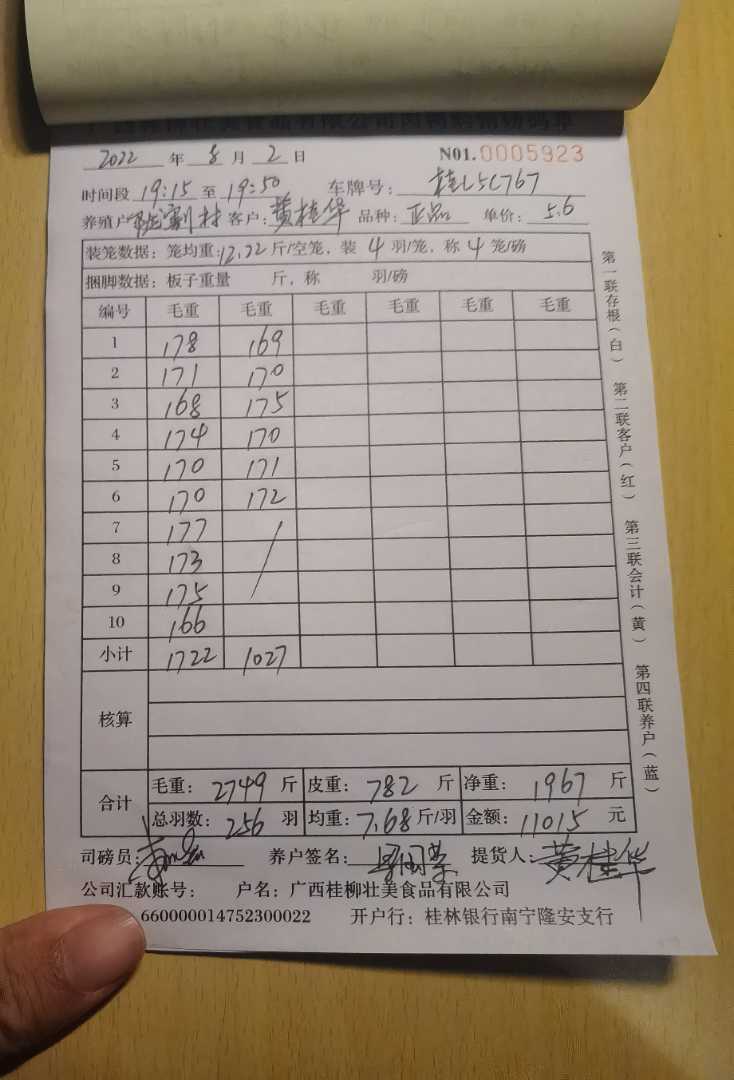 2022 年 8 月 2 日 N01.0005923
时间段 19:15 至 19:50 车牌号: 桂L5C767
养殖户 客户: 黄桂华 品种: 正品 单价: 5.6
装笼数据: 笼均重: 12.22 斤/空笼, 装 4 羽/笼, 称 4 笼/磅
捆脚数据: 板子重量 斤, 称 羽/磅
编号 毛重 毛重 毛重 毛重 毛重 毛重
1 178 169
2 171 170
3 168 175
4 174 170
5 170 171
6 170 172
7 177 /
8 173
9 175
10 166
小计 1722 1027
核算
合计 毛重: 2749 斤 皮重: 782 斤 净重: 1967 斤
总羽数: 256 羽 均重: 7.68 斤/羽 金额: 11015 元
司磅员: 养户签名: 提货人: 黄桂华
公司汇款账号: 户名: 广西桂柳壮美食品有限公司
660000014752300022 开户行: 桂林银行南宁隆安支行
第一联存根(白) 第二联客户(红) 第三联会计(黄) 第四联养户(蓝)